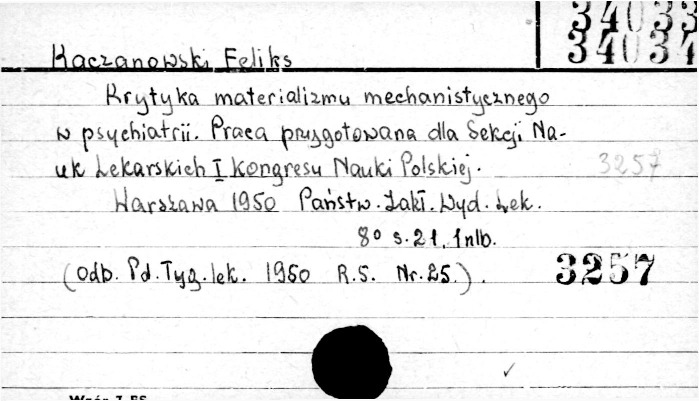 34033
34034
Kaczanowski Feliks
Krytyka materializmu mechanistycznego
w psychiatrii. Praca przygotowana dla Sekcji Na-
uk Lekarskich I Kongresu Nauki Polskiej.
3257
Warszawa 1950 Państw. Zakł. Wyd. Lek.
8° s. 21, 1 nlb.
(Odb. Pd. Tyg. lek. 1950 R.5. Nr. 25.).
3257
Wzór 7 BS